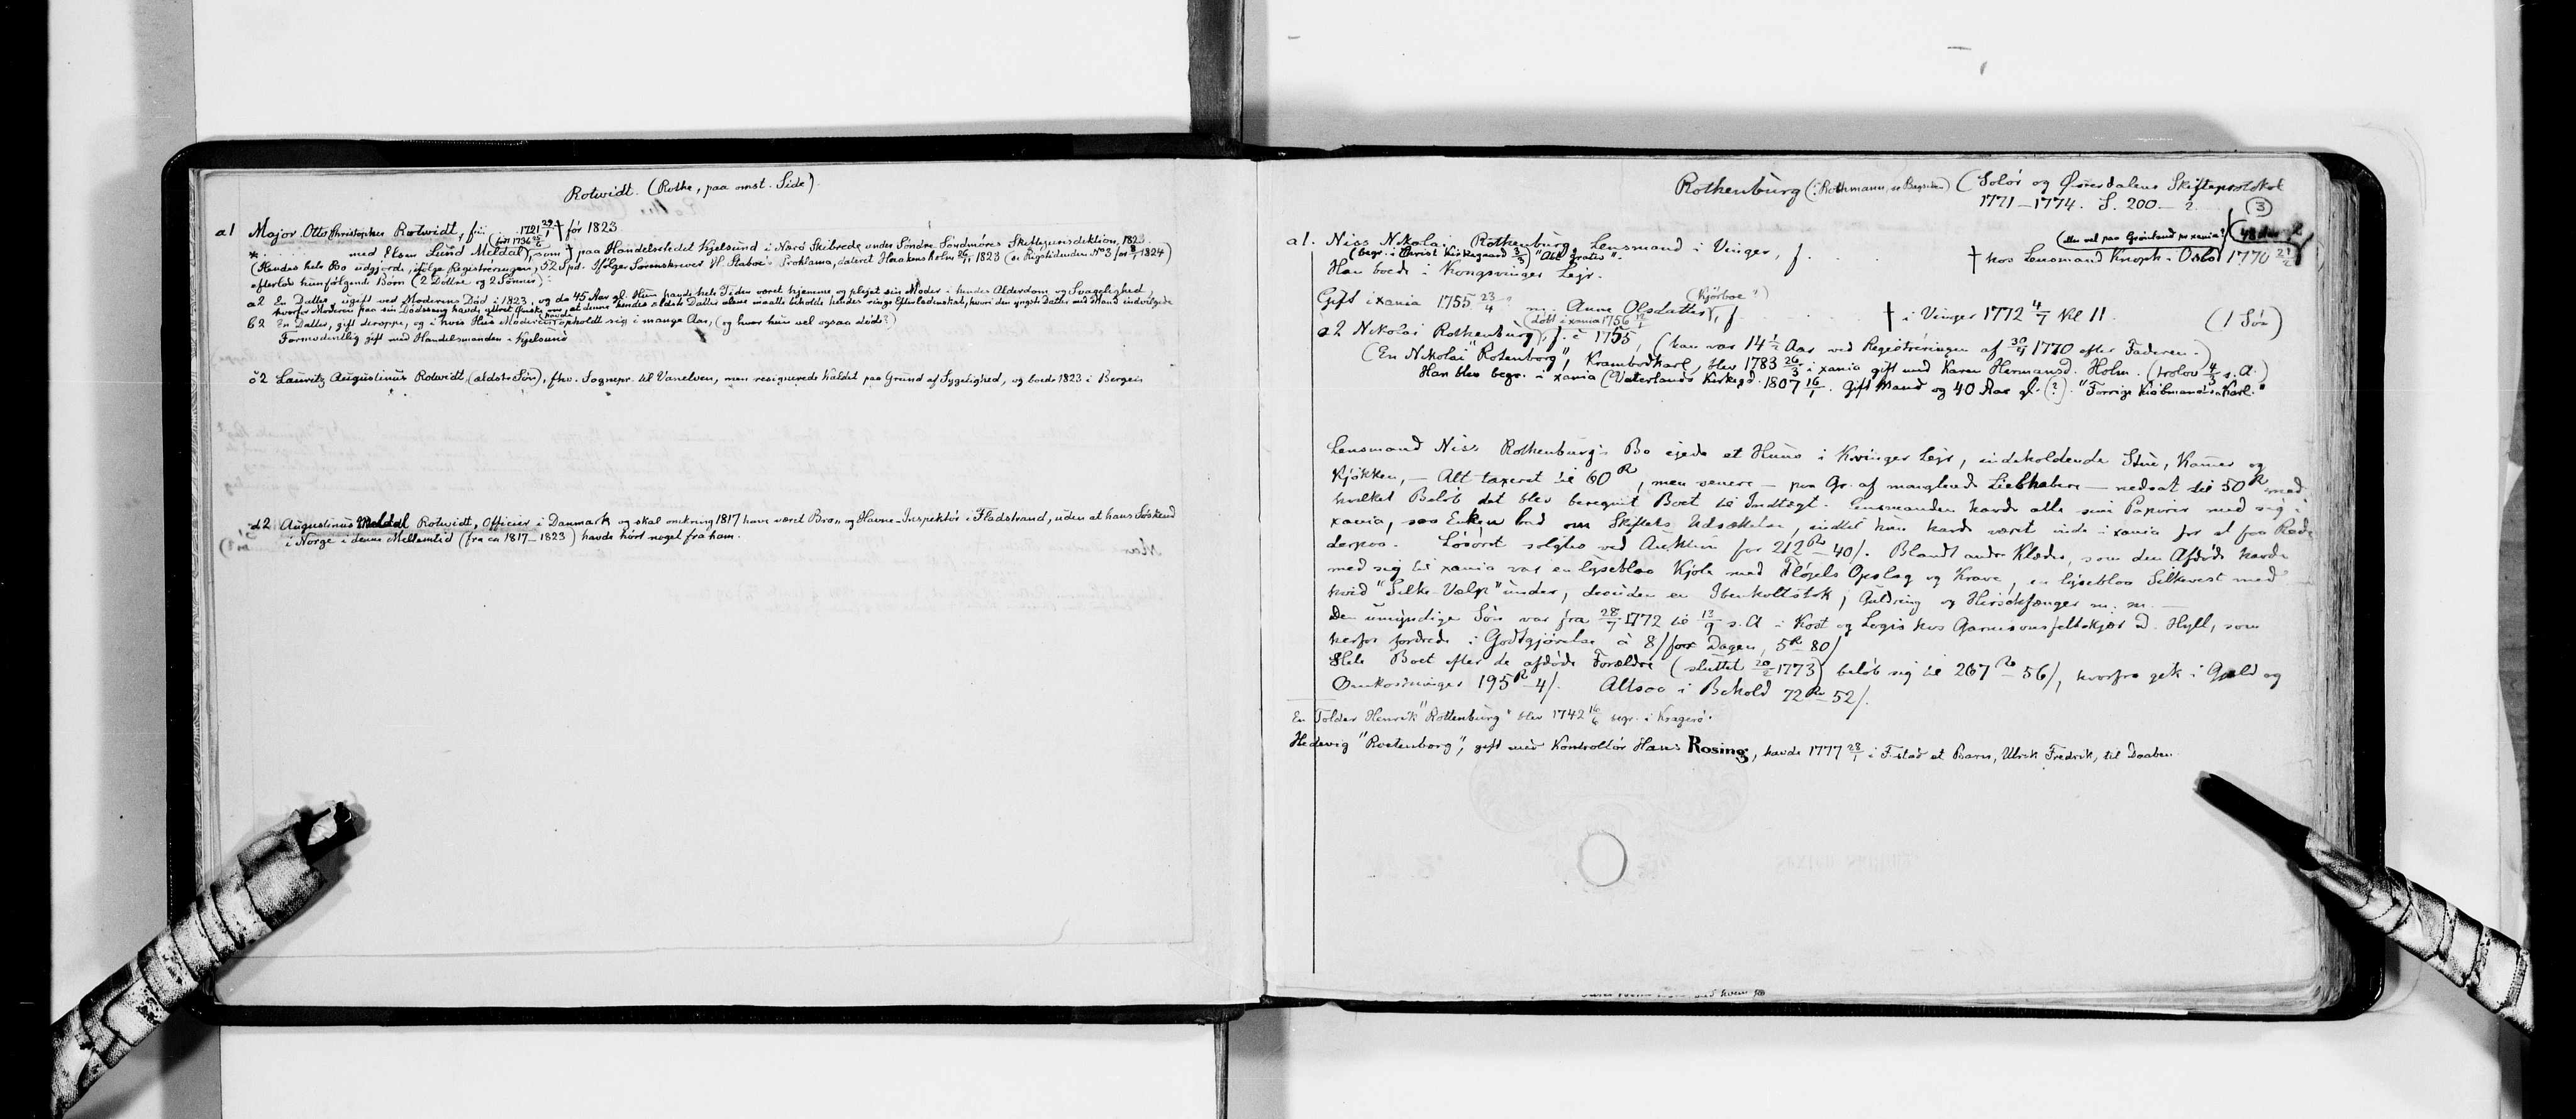 Rotwidt. (Rothe, paa omst. Side).
a1 Major Otto Christopher Rotwidt, f. 1721 29/1 † før 1823
* med Elsen Lund Meldal, (født 1736 25/6) som † paa Handelsstedet Kjelsund i Nærø Skibrede under Søndre Søndmøres Skiftejurisdiktion, 1823
(Hendes hele Bo udgjorde, ifølge Registreringen, 52 Spd. Ifølge Sorenskriver W. Staboe's Proklama, dateret Haakensholm 26/11 1823 (se Rigstidenden No 3 for 8/1 1824)
efterlod hun følgende Børn (2 Døttre og 2 Sønner):
a2 En Datter, ugift ved Moderens Død i 1823, og da 45 Aar gl. Hun havde hele Tiden været hjemme og plejet sin Moder i hendes Alderdom og Svagelighed,
hvorfor Moderen paa sin Dødsseng havde yttret Ønske om, at denne hendes ældste Datter alene maatte beholde hendes ringe Efterladenskab, hvori den yngste Datter med Mand indvilgede
b2 En Datter, gift deroppe, og i hvis Hus Moderen havde opholdt sig i mange Aar, (og hvor hun vel ogsaa døde?)
Formodentlig gift med Handelsmanden i Kjelsund
c2 Lauritz Augustinus Rotwidt, (ældste Søn), fhv. Sognepr. til Vanelven, men resignerede Kaldet paa Grund af Sygelighed, og boede 1823 i Bergen
d2 Augustinus Meldal Rotwidt, Officier i Danmark og skal omkring 1817 have været Bro- og Havne-Inspektør i Fladstrand, uden at hans Søskend
i Norge i denne Mellemtid (fra ca 1817-1823) havde hørt noget fra ham.
Rothenburg (: Rothmann, se Bagsiden) (Solør og Østerdalens Skifteprotokol
1771-1774. S. 200 - 2.
3
a1. Niss Nikolai Rothenburg, Lensmand i Vinger, f. (eller vel paa Grønland pr xania?) 48 Aar
(begr. i Christ Kirkegaard 3/3 "Alt gratis". † hos Lensmand Knoph i Oslo 1770 27/2
Han boede i Kongsvinger Lejr.
Gift i xania 1755 23/4? m. Anne Olsdatter, (Kjørboe?) f. † i Vinger 1772 4/7 Kl 11. (1 Søn)
a2 Nikolai Rothenburg, (døbt i xania 1756 12/1) f. i 1755, (han var 14 1/2 Aar ved Registreringen af 30/4 1770 efter Faderen.)
(En Nikolai "Rotenborg", Krambodkarl, blev 1783 26/3 i xania gift med Karen Hermansd. Holm. (trolov 4/3 s. A.)
Han blev begr. i xania (Vaterlands Kirkegd. 1807 16/1. Gift Mand og 40 Aar gl. (?). "Forrige Kiøbmands Karl."
Lensmand Niss Rothenburg's Bo ejede et Huus i Kvinger Lejr, indeholdende Stue, Kamer og
Kjøkken, - Alt taxeret til 60 R, men senere - paa Gr. af manglende Liebhabere - nedsat til 50 R, med
hvilket Beløb det blev beregnet Boet til Indtægt. Lensmanden havde alle sine Papirer med sig i
xania, saa Enken bad om Skiftets Udsættelse, indtil hun havde været inde i xania for at faa Rede
derpaa. Løsøret solgtes ved Auktion for 212 R - 40/. Blandt andre Klæder, som den Afdøde havde
med sig til xania var en lyseblaa Kjole med Fløjels Opslag og Krave, en lyseblaa Silkevest med
hvid "Silke-Vælp" under, desuden en Ibenholtstok, Guldring og Hirschfænger m. m. -
Den umyndige Søn var fra 28/7 1772 til 13/9 s. A i Kost og Logis hos Garnisonsfeltskjær D. Hyll, som
herfor fordrede i Godtgjørelse à 8/ for Dagen, 5 R 80/
Hele Boet efter de afdøde Forældre (sluttet 20/2 1773) beløb sig til 267 R - 56/, hvorfra gik i Gjæld og
Omkostninger 195 R - 4/. Altsaa i Behold 72 R - 52/.
En Tolder Henrik "Rottenburg" blev 1742 16/6 begr. i Kragerø.
Hedevig "Roetenborg", gift med Kontrollør Hans Rosing, havde 1777 28/1 i F.stad et Barn, Ulrik Fredrik, til Daaben.